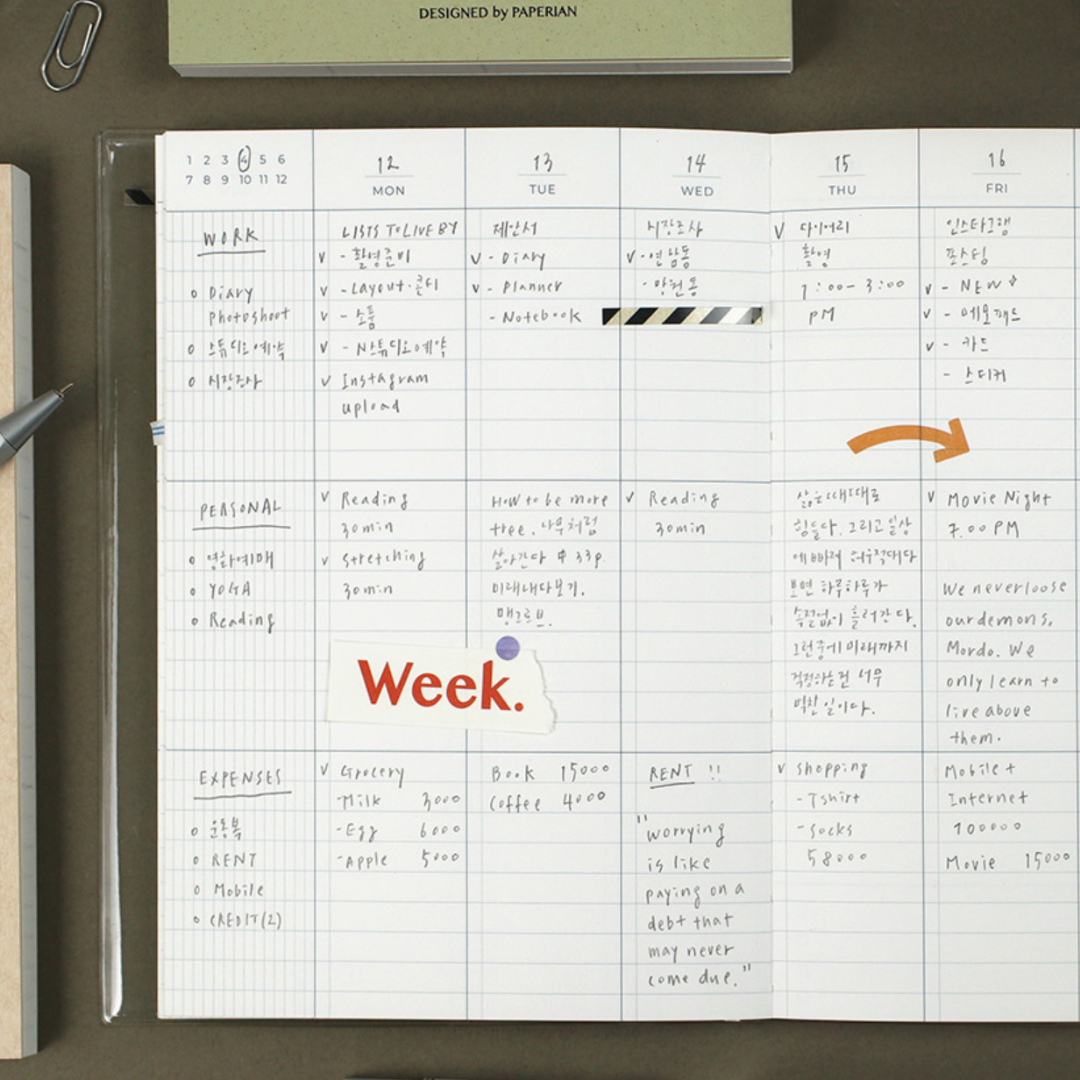 DESIGNED by PAPERIAN
1 2 3 4 5 6
7 8 9 10 11 12
12
MON
13
TUE
14
WED
15
THU
16
FRI
WORK
Diary
photoshoot
스튜디오예약
시장조사
LISTS TO LIVE BY
v - 촬영준비
v - Layout·콘티
v - 소품
v - 스튜디오예약
v Instagram
upload
제안서
v - Diary
v - Planner
- Notebook
시장조사
v - 연남동
- 망원동
v 다이어리
촬영
1:00-3:00
PM
인스타그램
포스팅
v - NEW
v - 메모패드
v - 카드
- 스티커
PERSONAL
영화예매
YOGA
Reading
v Reading
30min
v stretching
30min
How to be more
tree. 나무처럼
살아간다 中 33p.
미래내다보기.
맹그로브.
v Reading
30min
삶은 때때로
힘들다. 그리고 일상
에 빠져 허우적대다
보면 하루하루가
속절없이 흘러간다.
그런 중에 미래까지
걱정하는 건 너무
벅찬 일이다.
v Movie Night
7.00 PM
We never loose
our demons,
Mordo. We
only learn to
live above
them.
Week.
EXPENSES
운동복
RENT
Mobile
CREDIT(2)
v Grocery
-Milk 3000
-Egg 6000
-Apple 5000
Book 15000
Coffee 4000
RENT !!
"worrying
is like
paying on a
debt that
may never
come due."
v shopping
- Tshirt
- socks
58000
Mobile +
Internet
100000
Movie 15000